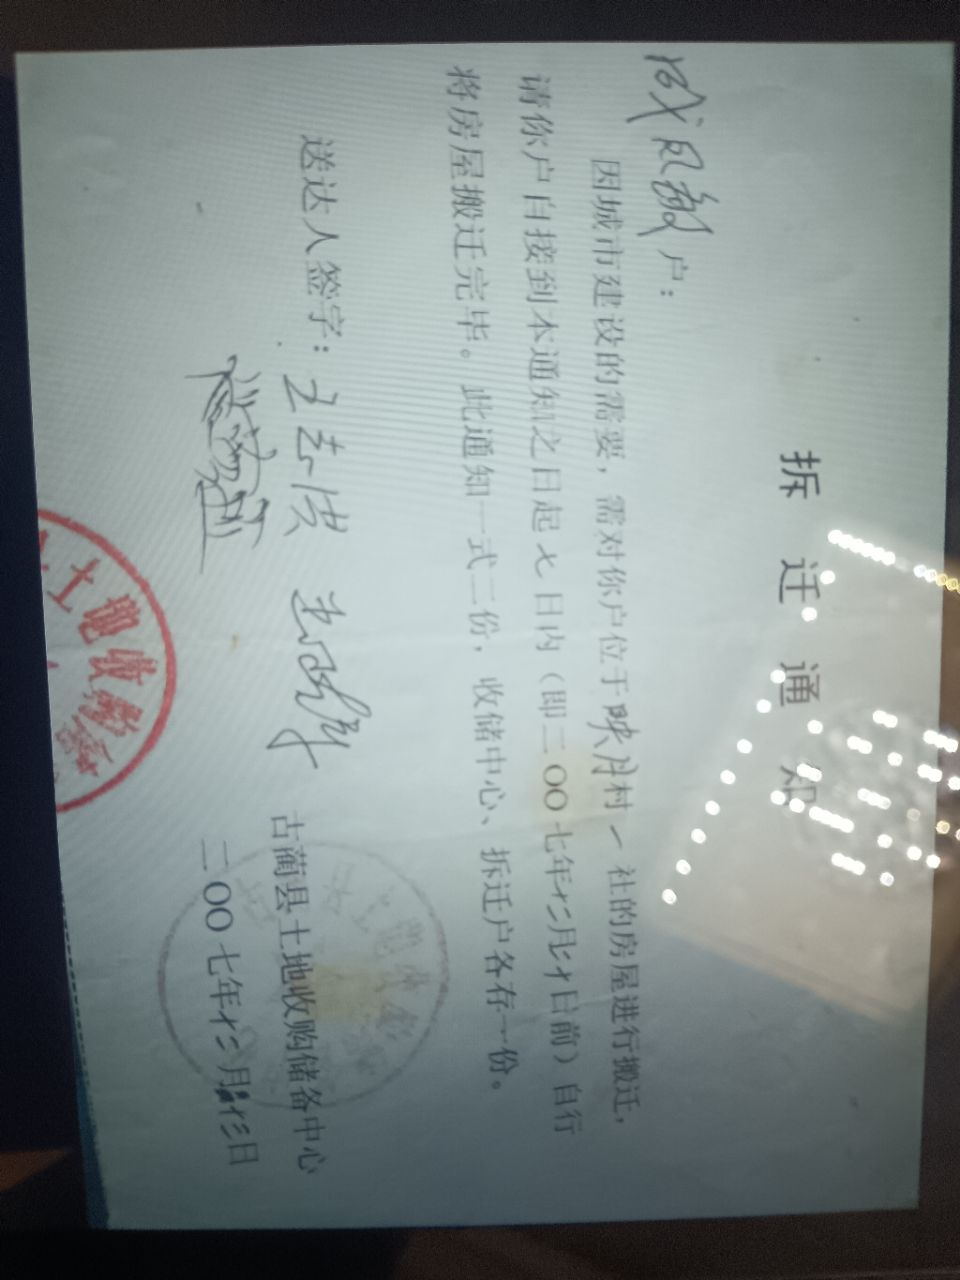 拆迁通知
户：
因城市建设的需要，需对你户位于映月村一社的房屋进行搬迁，
请你户自接到本通知之日起七日内（即二00七年十二月 日前）自行
将房屋搬迁完毕。此通知一式二份，收储中心、拆迁户各存一份。
送达人签字：
古蔺县土地收购储备中心
二00七年十二月 日
土地收